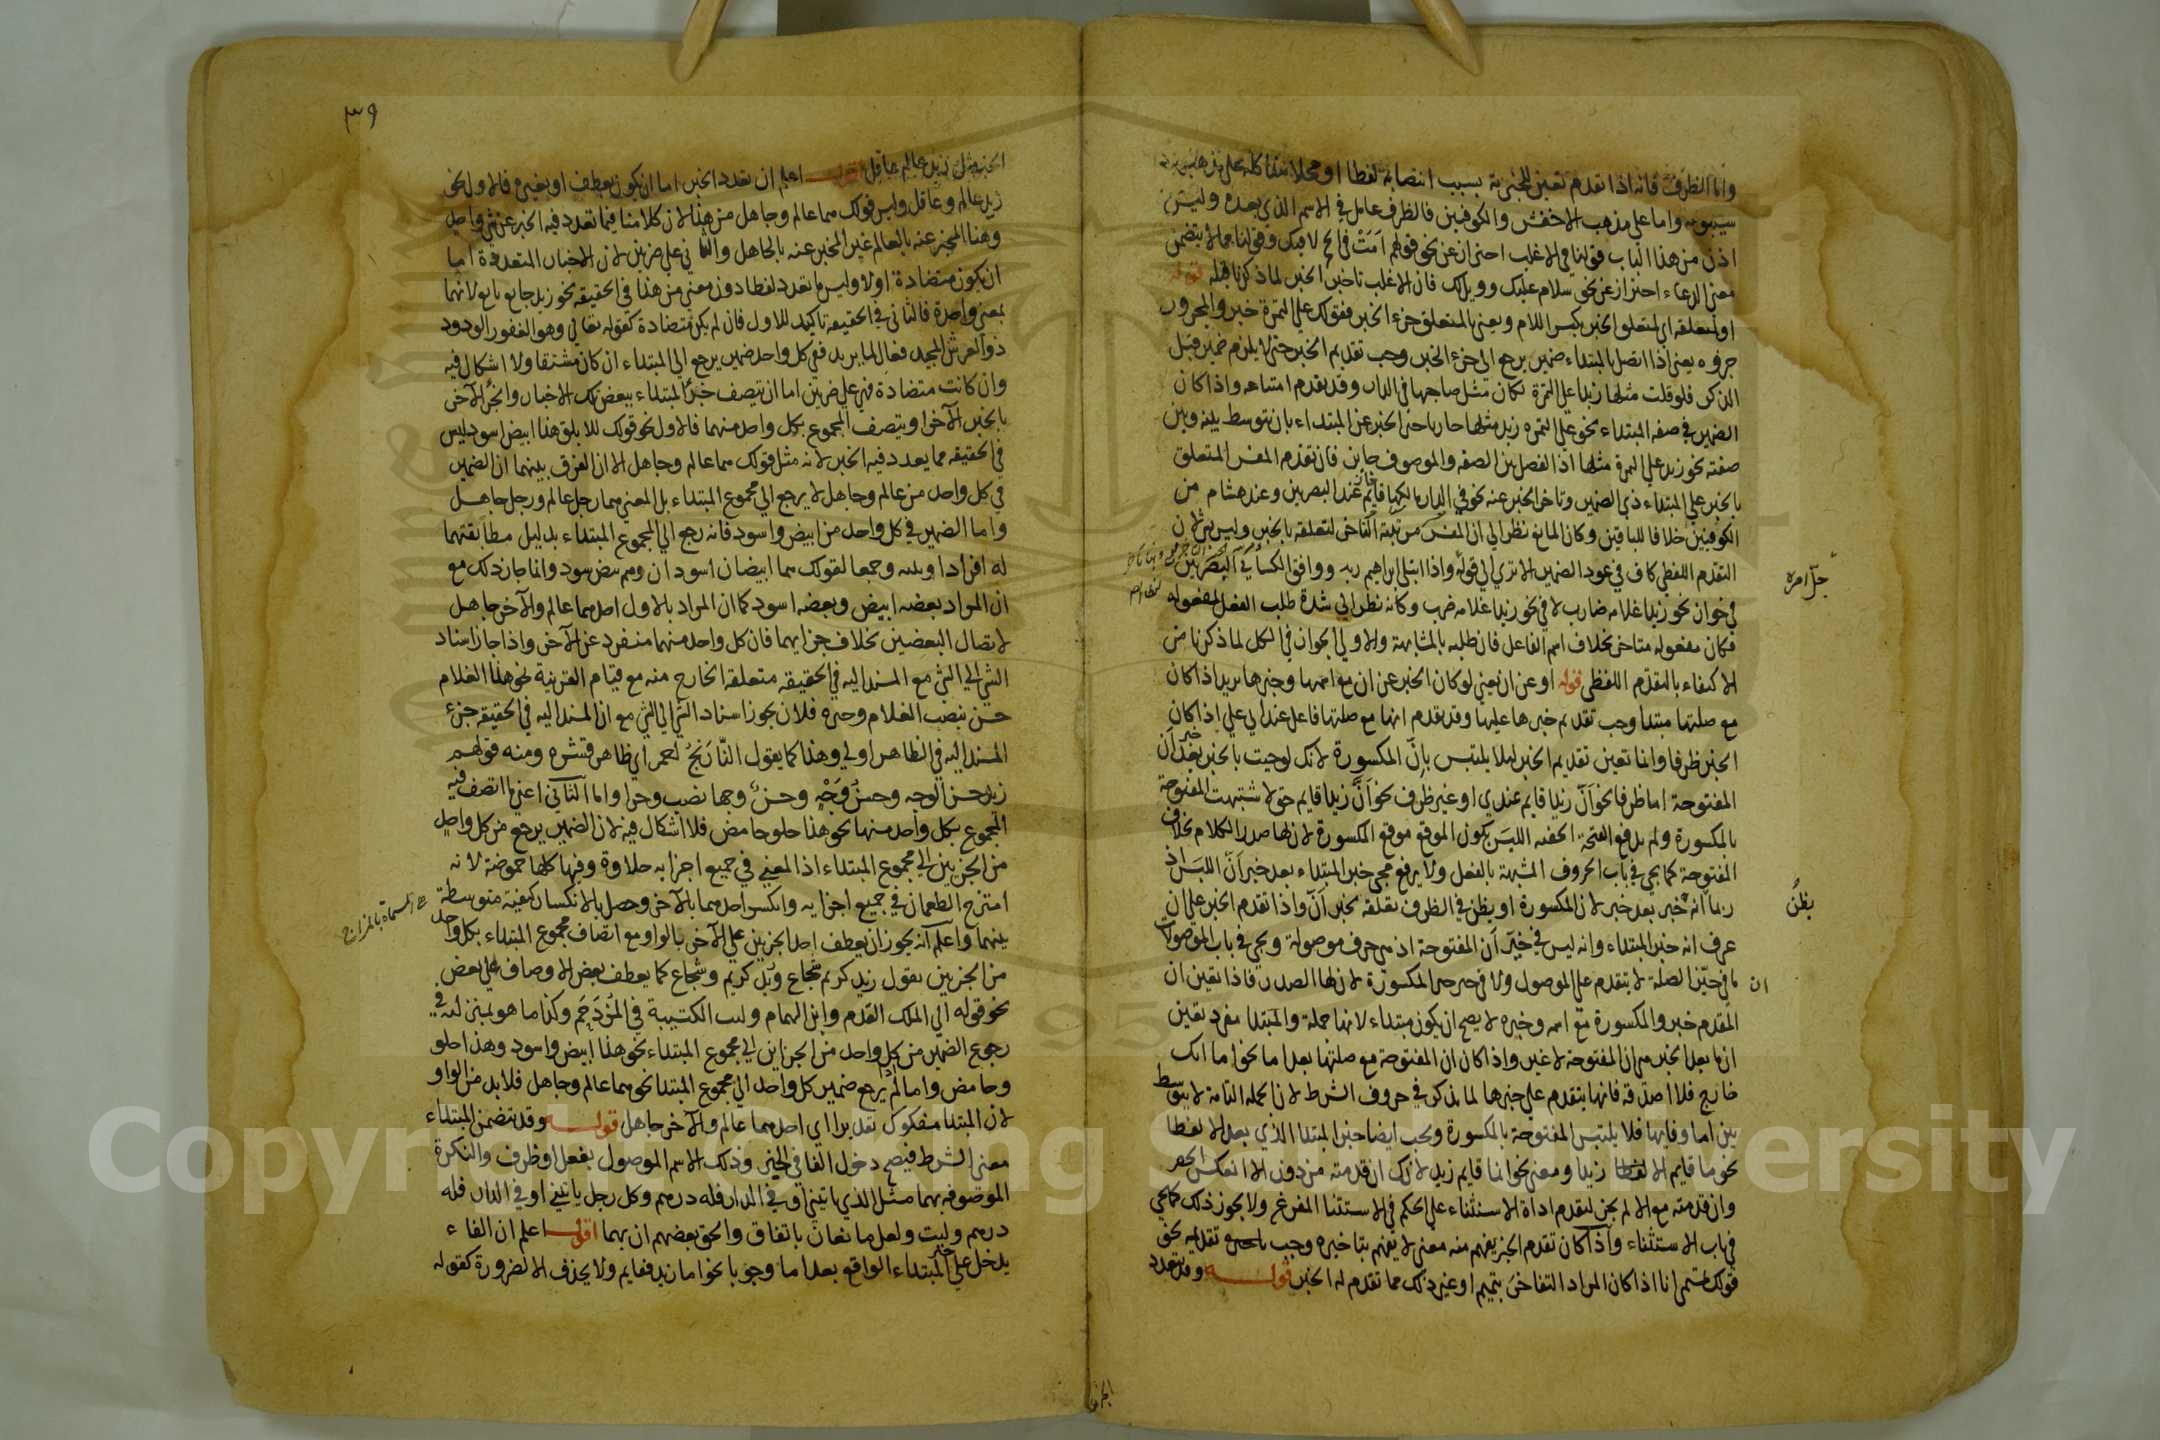 واما الظرف فانه اذا تقدم تعين للخبرية بسبب انتصابه لفظا او محلا
سيبويه واما على مذهب الاخفش والكوفيين فالظرف عامل في الاسم الذي بعده وليس
اذن من هذا الباب قولنا في الاغلب احتراز عن نحو قولهم امت في الحجر لا فيك وقولنا مما لا يتضمن
معنى الدعاء احتراز عن نحو سلام عليك وويل لك فان الاغلب تاخير الخبر لما ذكرنا قبله قوله
او لمتعلقه اي لمتعلق الخبر بكسر اللام ويعني بالمتعلق جزء الخبر فقولك على التمرة خبر والمجرور
جزوه يعني اذا اتصل بالمبتداء ضمير يرجع الى جزء الخبر وجب تقديم الخبر حتى لا يلزم ضمير قبل
الذكر فلو قلت مثلها زبدا على التمرة لكان مثل صاحبها في الدار وقد تقدم امتناعه واذا كان
الضمير في صفه المبتداء نحو على التمره زبد مثلها جاز تاخير الخبر عن المبتداء بان توسط بينه وبين
صفته نحو زبد على التمرة مثلها اذ الفصل بين الصفه والموصوف جايز فان تقدم المفسر المتعلق
بالخبر على المبتداء ذي الضمير وتاخر الخبر عنه نحو في الدار مالكها قايم جاز عند البصريين وعند هشام من
الكوفيين خلافا للباقين وكان المانع نظر الى ان المفسر مرتبة التاخر لتعلقه بالخبر وليس بشئ لان
التقدم اللفظي كاف في عود الضمير الا ترى الى قوله واذ ابتلى ابراهيم ربه ووافق الكسائي البصريين
في جواز نحو زيدا غلامه ضارب لا في نحو زيدا غلامه ضرب وكانه نظر الى شدة طلب الفعل لمفعوله
فكان مفعوله متاخر بخلاف اسم الفاعل فان طلبه بالمشابهة والاولى الجواز في الكل لما ذكرنا من
الاكتفاء بالتقدم اللفظي قوله او عن ان يعني لو كان الخبر عن ان مع اسمها وخبرها يريد اذا كان
مع صلتها مبتدا وجب تقديم خبرها عليها وقد تقدم انها مع صلتها فاعل عند ابي علي اذا كان
الخبر ظرفا وانما تعين تقديم الخبر لئلا يلتبس بان المكسورة لانك لو جيت بالخبر بعد خبر ان
المفتوحة اما ظرفا نحو ان زيدا قايم عندي او غير ظرف نحو ان زيدا قايم حق لاشتبهت المفتوحة
بالمكسورة ولم يدفع الفتحة الخفية اللبس لكون الموقع موقع المكسورة لان لها صدر الكلام بخلاف
المفتوحة كما يجي في باب الحروف المشبهة بالفعل ولا يرفع مجي خبر المبتداء بعد خبر ان اللبس اذ
ربما انه خبر بعد خبر لان المكسورة او يظن في الظرف تعلقه بخبر ان واذا تقدم الخبر على ان
عرف انه خبر المبتداء وانه ليس في حيز ان المفتوحة اذ هي حرف موصولة ويجي في باب الموصولات
ما في حيز الصلة لا يتقدم على الموصول ولا في حيز المكسورة لان لها الصدر فاذا تعين ان
المقدم خبر والمكسورة مع اسمه وخبره لا يصح ان يكون مبتداء لانها جملة والمبتدا مفرد تعين
ان ما بعد الخبر هي ان المفتوحة لا غير واذا كان ان المفتوحة مع صلتها بعد اما نحو اما انك
خارج فلا اصدقه فانها يتقدم على خبرها لما يذكر في حروف الشرط لان الجملة التامة لا يتوسط
بين اما وفايها فلا يلتبس المفتوحة بالمكسورة ويجب ايضا خبر المبتدا الذي بعد الا لفظا
نحو ما قايم الا زيد او معنى نحو انما قايم زيد لانك ان قدمته من دون الا انعكس الحصر
وان قدمته مع الا لم يجز لتقدم اداة الاستثناء على الحكم في الاستثنا المفرغ ولا يجوز ذلك كما يجي
في باب الاستثناء واذا كان تقدم الخبر يفهم منه معنى لا يفهم بتاخيره وجب تقديمه نحو
قولك تميمي انا اذا كان المراد التفاخر بتميم او غير ذلك مما تقدم له الخبر قوله وقد تعدد
يظن
ان
٣٩
الخبر مثل زيد عالم عاقل اعلم ان تعدد الخبر اما ان يكون بعطف او بغيره فالاول نحو
زيد عالم وعاقل وليس قولك هما عالم وجاهل من هذا لان كلامنا فيما تعدد فيه الخبر عن شي واحد
وهنا المخبر عنه بالعالم غير المخبر عنه بالجاهل والثاني على ضربين لان الاخبار المتعددة اما
ان يكون متضادة اولا وليس ما تعدد لفظا دون معنى من هذا في الحقيقة نحو زيد جايع نايع لانهما
بمعنى واحدة فالثاني في الحقيقة تاكيد للاول فان لم يكن متضادة كقوله تعالى وهو الغفور الودود
ذو العرش المجيد فعال لما يريد ففي كل واحد ضمير يرجع الى المبتداء ان كان مشتقا ولا اشكال فيه
وان كانت متضادة فهي على ضربين اما ان يتصف جزء المبتداء ببعض تلك الاخبار والجزء الآخر
بالخبر الآخر او يتصف المجموع بكل واحد منهما فالاول نحو قولك للابلق هذا ابيض اسود ليس
في الحقيقه مما يعدد فيه الخبر لانه مثل قولك هما عالم وجاهل الا ان الفرق بينهما ان الضمير
في كل واحد من عالم وجاهل لا يرجع الى مجموع المبتداء بل المعنى هما رجل عالم ورجل جاهل
واما الضمير في كل واحد من ابيض واسود فانه رجع الى المجموع المبتداء بدليل مطابقتهما
له افرادا وتثنيه وجمعا لقولك هما ابيضان اسودان وهم بيض سود وانما جاز ذلك مع
ان المراد بعضه ابيض وبعضه اسود كما ان المراد بالاول احدهما عالم والآخر جاهل
لاتصال البعضين بخلاف جزايهما فان كل واحد منهما منفرد عن الآخر واذا جاز اسناد
الشي الى الشي مع المسند اليه في الحقيقه متعلقه الخارج منه مع قيام القرينة نحو هذا الغلام
حسن بنصب الغلام وجره فلان يجوز اسناد الشي الى الشي مع ان المسند اليه في الحقيقه جزء
المسند اليه في الظاهر اولى وهذا كما يقول النارنج احمر اي ظاهر قشره ومنه قولهم
زيد حسن الوجه وحسن وجه وحسن وجها نصب وجرا واما الثاني اعني ما اتصف فيه
المجموع بكل واحد منهما نحو هذا حلو حامض فلا اشكال فيه لان الضمير يرجع من كل واحد
من الجزين الى مجموع المبتداء اذ المعنى في جميع اجزايه حلاوة وفيها كلها حموضة لانه
امتزج الطعمان في جميع اجزايه وانكسر احدهما بالآخر وحصل بالانكسار كيفية متوسطة
بينهما واعلم انه يجوز ان يعطف احد الخبرين على الآخر بالواو مع اتصاف مجموع المبتداء بكل واحد
من الخبرين تقول زيد كريم شجاع وزيد كريم وشجاع كما يعطف بعض الاوصاف على بعض
نحو قوله الى الملك القرم وابن الهمام وليث الكتيبة في المزدحم وكذا ما هو بمنزلته في
رجوع الضمير من كل واحد من الجزاين الى مجموع المبتداء نحو هذا ابيض واسود وهذا حلو
وحامض واما لم يرجع ضمير كل واحد الى مجموع المبتدا نحو هما عالم وجاهل فلابد من الواو
لان المبتدا مفكوك تقديرا اي احدهما عالم والآخر جاهل قوله وقد تضمن المبتداء
معنى الشرط فيصح دخول الفا في الخبر وذلك الاسم الموصول بفعل او ظرف والنكرة
الموصوفه بهما مثل الذي ياتيني او في الدار فله درهم وكل رجل ياتيني او في الدار فله
درهم وليت ولعل مانعان باتفاق والحق بعضهم ان بهما اقول اعلم ان الفاء
يدخل على خبر المبتداء الواقع بعد اما وجوبا نحو اما زيد فقايم ولا يحذف الا لضرورة كقوله